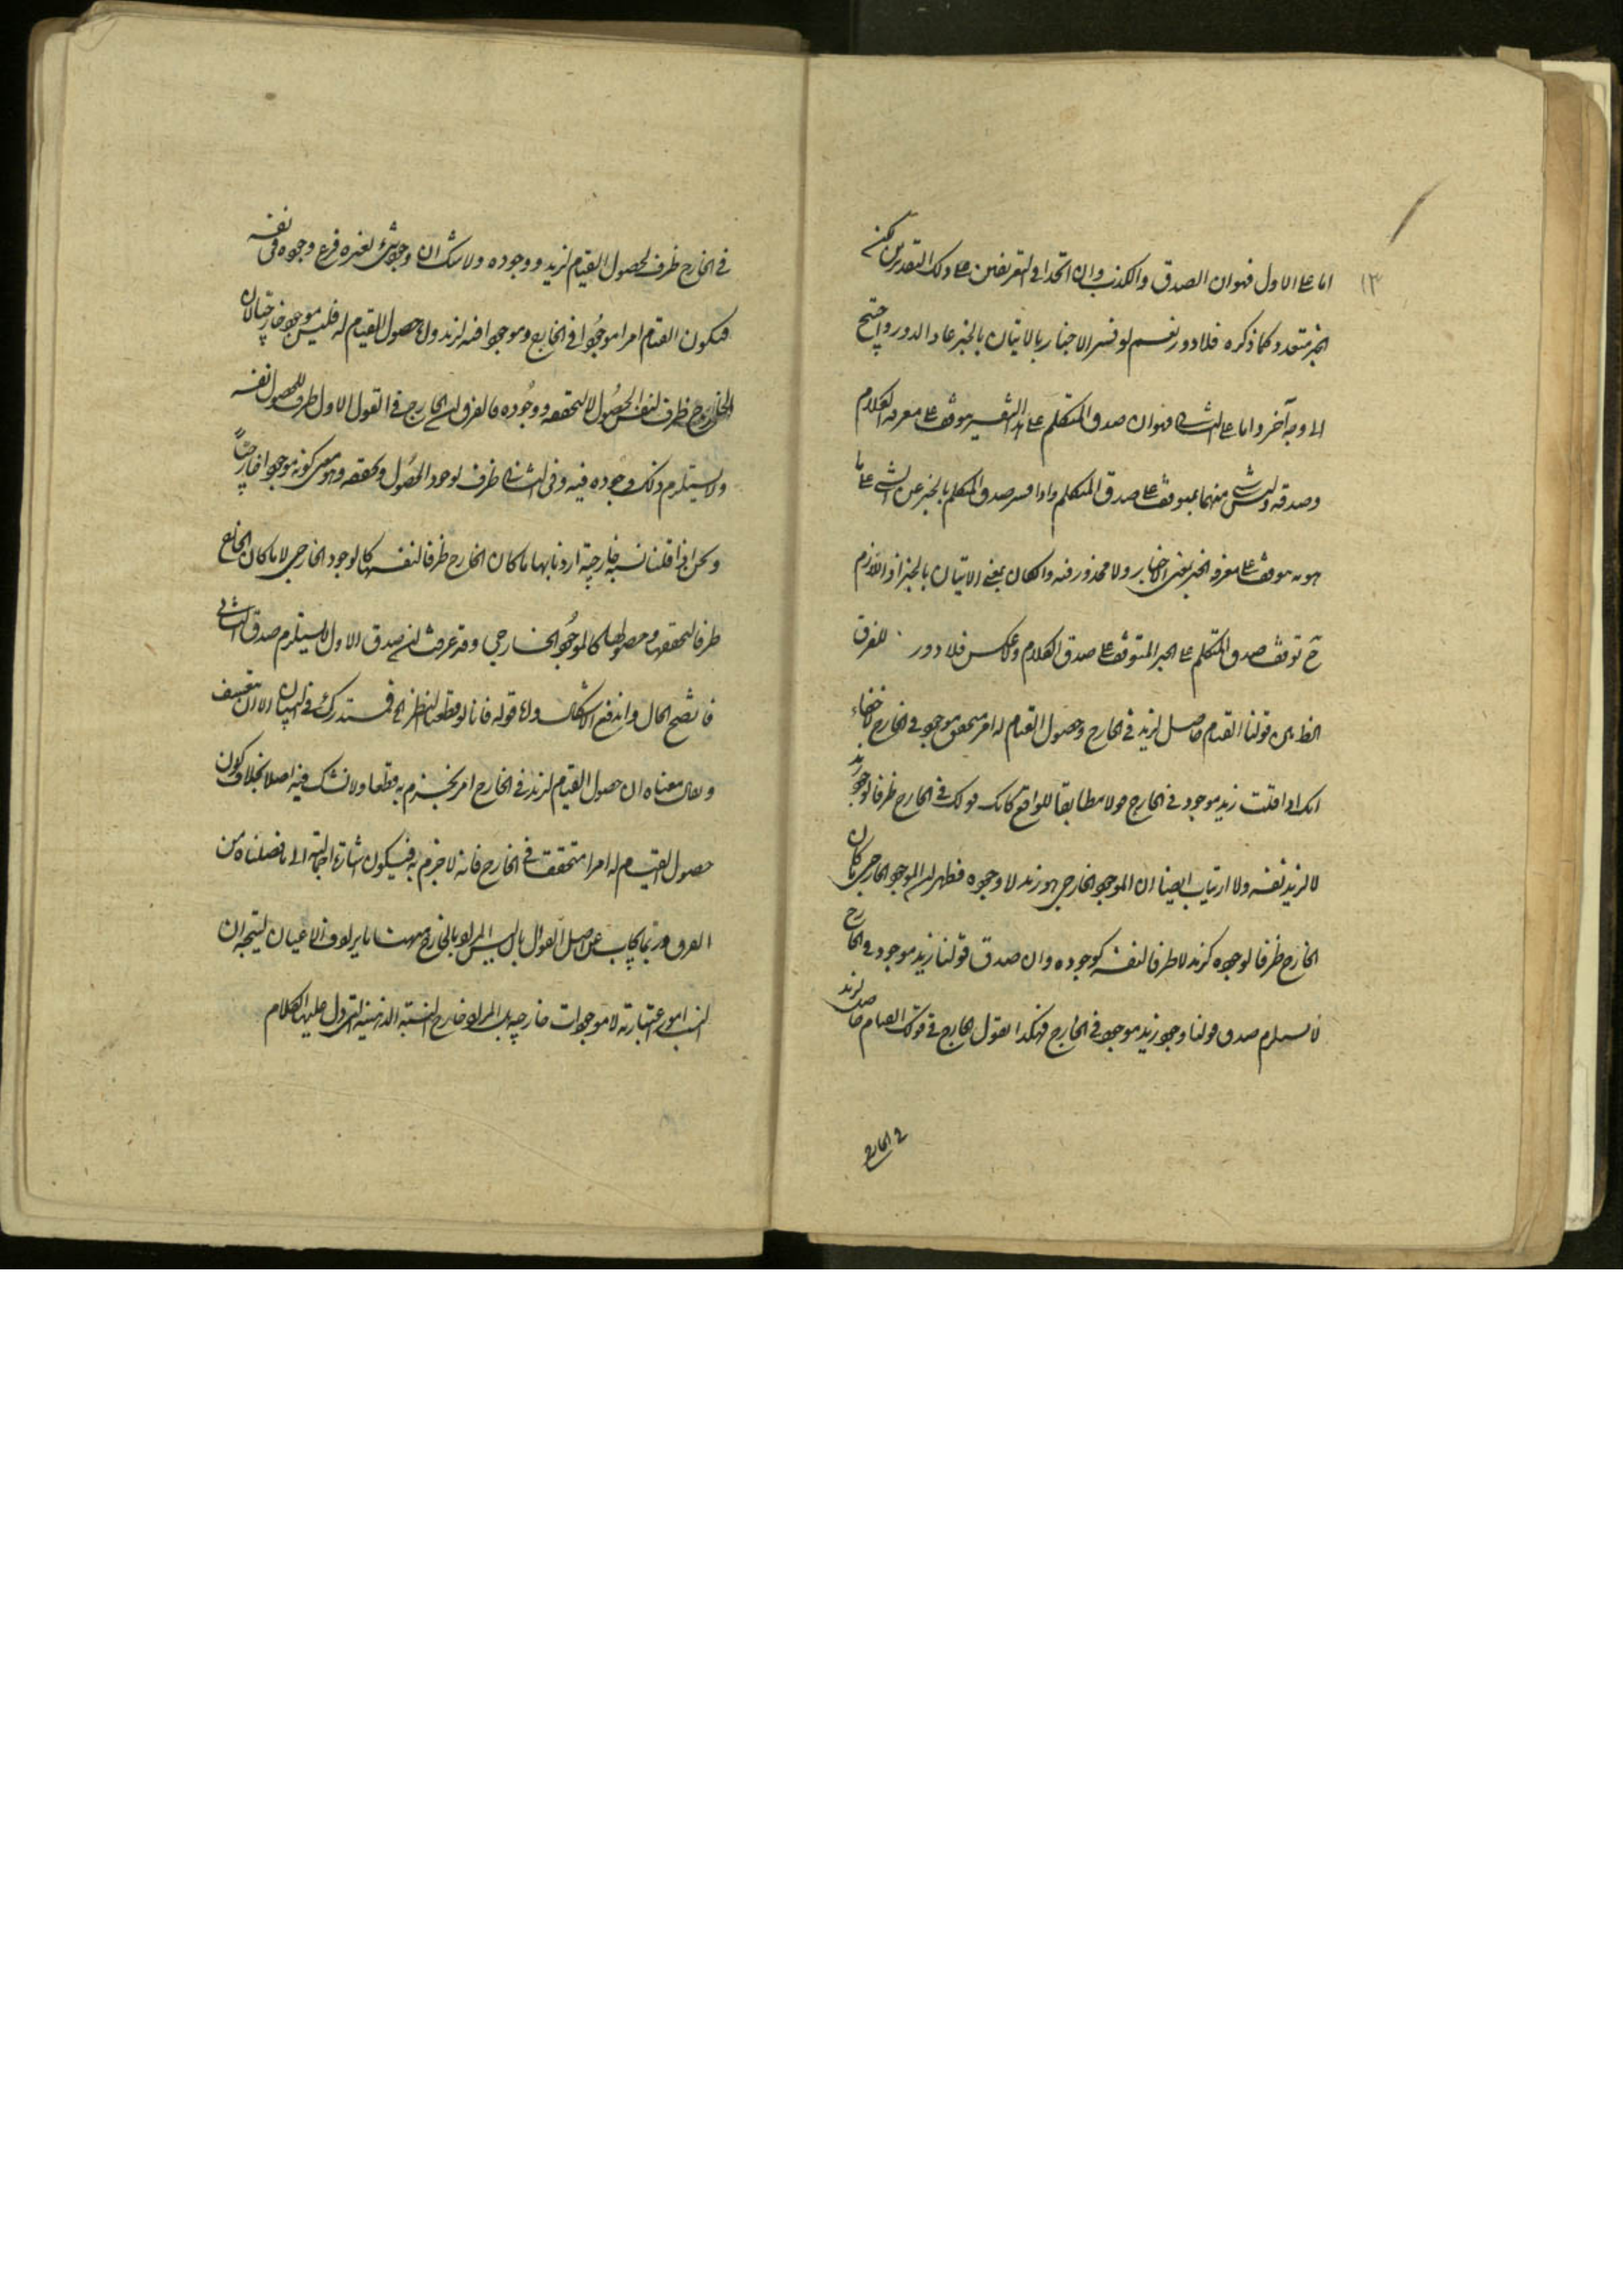 ١٣
اما على الاول فهو ان الصدق والكذب وان اتحدا فى التعريفين على ذلك التقدير لكن
الخبر متعدد كما ذكره فلا دور نعم لو فسر الاخبار بالاتيان بالخبر عاد الدور واحتيج
الى وجه آخر واما على الثانى فهو ان صدق المتكلم على هذا التفسير موقوف على معرفة الكلام
وصدقه وليس شىء منهما بموقوف على صدق المتكلم واذا فسر صدق المتكلم بالخبر عن الشىء على ما
هو به موقوف على معرفة الخبر بمعنى الاخبار ولا محذور فيه وان كان بمعنى الاتيان بالخبر اذ اللازم
ح توقف صدق المتكلم على الخبر المتوقف على صدق الكلام ولا عكس فلا دور للفرق
الظاهر بين قولنا القيام حاصل لزيد فى الخارج وحصول القيام له امر متحقق موجود فى الخارج لا خفاء
انك اذا قلت زيد موجود فى الخارج قولا مطابقا للواقع كان قولك فى الخارج ظرفا لوجود زيد
لا لزيد نفسه ولا ارتياب ايضا ان الموجود الخارجى هو زيد لا وجوده فظهر ان الموجود الخارجى ما كان
الخارج ظرفا لوجوده كزيد لا ظرفا لنفسه كوجوده وان صدق قولنا زيد موجود فى الخارج
لا يستلزم صدق قولنا وجود زيد موجود فى الخارج فهكذا نقول الخارج فى قولك القيام حاصل لزيد
فى الخارج
فى الخارج ظرف لحصول القيام لزيد ووجوده ولا شك ان وجود شىء لغيره فرع وجوده فى نفسه
فيكون القيام امرا موجودا فى الخارج وموجودا فيه لزيد واما حصول القيام له فليس موجودا خارجيا لان
الخارج ظرف لنفس الحصول لا لتحققه ووجوده فالفرق ان الخارج فى القول الاول ظرف للحصول نفسه
ولا يستلزم ذلك وجوده فيه وفى الثانى ظرف لوجود الحصول وتحققه وهو معنى كونه موجودا خارجيا
ونحن اذا قلنا نسبة خارجية اردنا بها ما كان الخارج ظرفا لنفسها كالوجود الخارجى لا ما كان الخارج
ظرفا لتحققها وحصولها كالموجود الخارجى وقد عرفت ان صدق الاول لا يستلزم صدق الثانى
فاتضح الحال واندفع الاشكال واما قوله فانا لو قطعنا النظر الخ فمستدرك فى البيان الا ان يتعسف
ويقال معناه ان حصول القيام لزيد فى الخارج امر نجزم به قطعا ولا نشك فيه اصلا بخلاف كون
حصول القيام له امرا متحققا فى الخارج فانه لا جزم به فيكون اشارة اجمالية الى ما فصلناه من
الفرق وربما يجاب عن اصل السؤال بان ليس المراد بالخارج ههنا ما يرادف الاعيان ليتجه ان
النسب امور اعتبارية لا موجودات خارجية بل المراد خارج النسبة الذهنية التى دل عليها الكلام